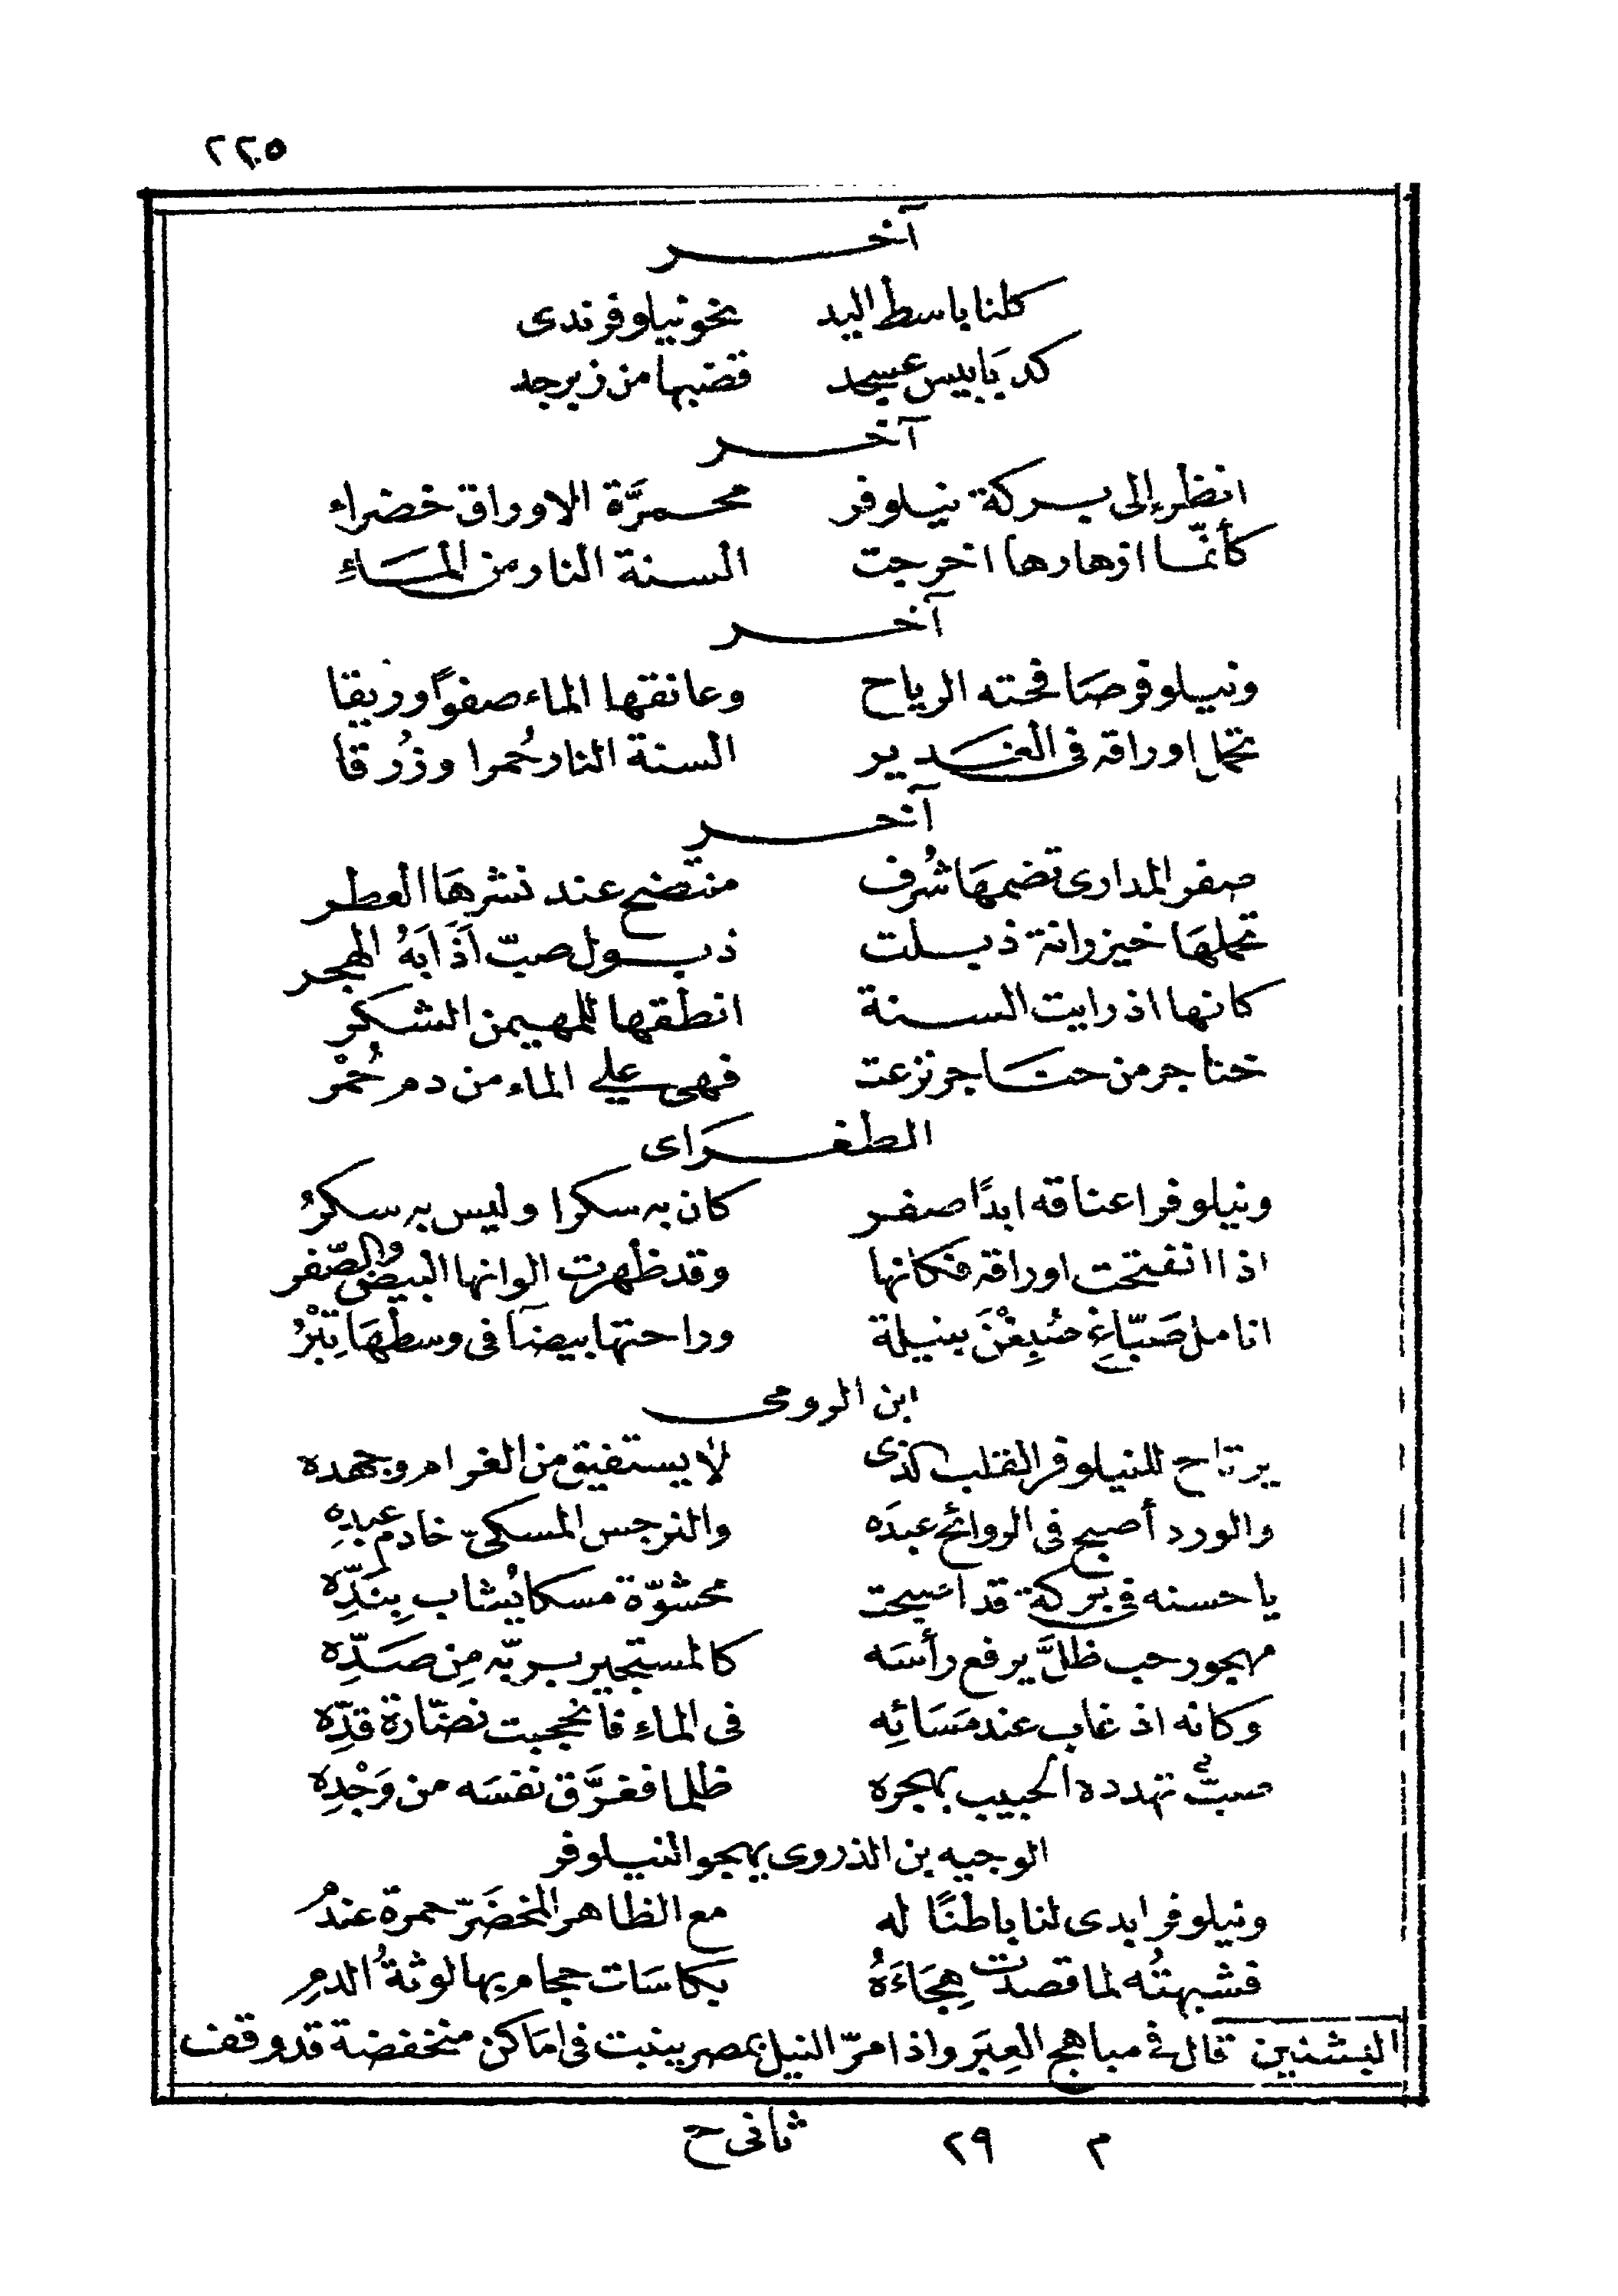 ٢٢٥
آخر
كلنا باسط اليد نحو نيلوفر ندى
كدبابيس عسجد قضبها من زبرجد
آخر
انظر إلى بركة نيلوفر محمرَّة الاوراق خضراء
كأنّما ازهارها اخرجت السنة النار من الماءِ
آخر
ونيلوفر صافحته الرياح وعانقها الماء صفوًا وريقا
تحمل اوراقه فى الغدير السنة النار حُمرا وزُرقا
آخر
صفر المدارى تضمها شُرف منتضح عند نشرها العطر
تحملها خيزرانة ذبلت ذبول صبّ اَذَابَهُ الهجر
كانها اذ رايت السنة انطقها للمهيمن الشكر
خناجر من حناجر نزعت فهى على الماء من دم حُمْر
الطغراى
ونيلوفر اعناقه ابدًا صفر كان به سكرا وليس به سكرُ
اذا انفتحت اوراقه فكانها وقد ظهرت الوانها البيض والصّفر
انامل صَبّاغٍ صُبِغْنَ بنيلة وراحتها بيضآ فى وسطها تِبْرُ
ابن الرومى
يرتاح للنيلوفر القلب الذى لا يستفيق من الغرام وجهده
والورد أصبح فى الروائح عبدَه والنرجس المسكىّ خادم عبدِهِ
يا حسنه فى بركة قد اصبحت محشوّة مسكا يُشاب بِندِّه
مهجور حب ظلَّ يرفع رأسَه كالمستجير بربّه مِن صَدِّه
وكانه اذ غاب عند مَسَائِه فى الماءِ فانحجبت نضّارة قدِّه
صبٌّ تهدده الحبيب بهجره ظلما فغرَّق نفسَه من وَجْدِه
الوجيه بن الذروى يهجو النيلوفر
ونيلوفر ابدى لنا باطنًا له مع الظاهر المخضَرّ حمرة عندمُ
فشبهتُه لما قصدت هِجَاءَهُ بكاسَات حجام بها لوثةُ الدمِ
البشنين قال فى مباهج العِبَر واذا مرّ النيل بمصر ينبت فى اماكن منخفضة قد وقف
م ٢٩ ثانى ح